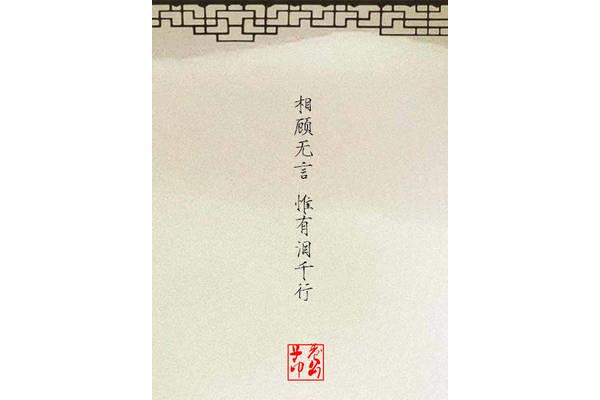 相顾无言 惟有泪千行